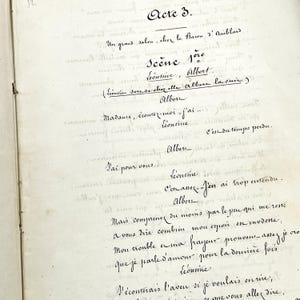 Acte 3.
Un grand salon, chez le Baron d'Ambland
Scène 1ère
Léontine, Albert
(Léontine sort de chez elle Albert la suivre)
Albert
Madame, écoutez-moi.. j'ai...
Léontine
C'est du temps perdu.
Albert
J'ai pour vous..
Léontine
C'en assez.. J'en ai trop entendu.
Albert
Mais comprenez du moins par le peu qui me reste
à vous dire combien mon espoir en modeste,
Mon trouble en ma frayeur prouvent assez je crois
que je parle d'amour pour la dernière fois
Léontine
J'écouterais l'aveu si je voulais en rire,
que vous allez dire,